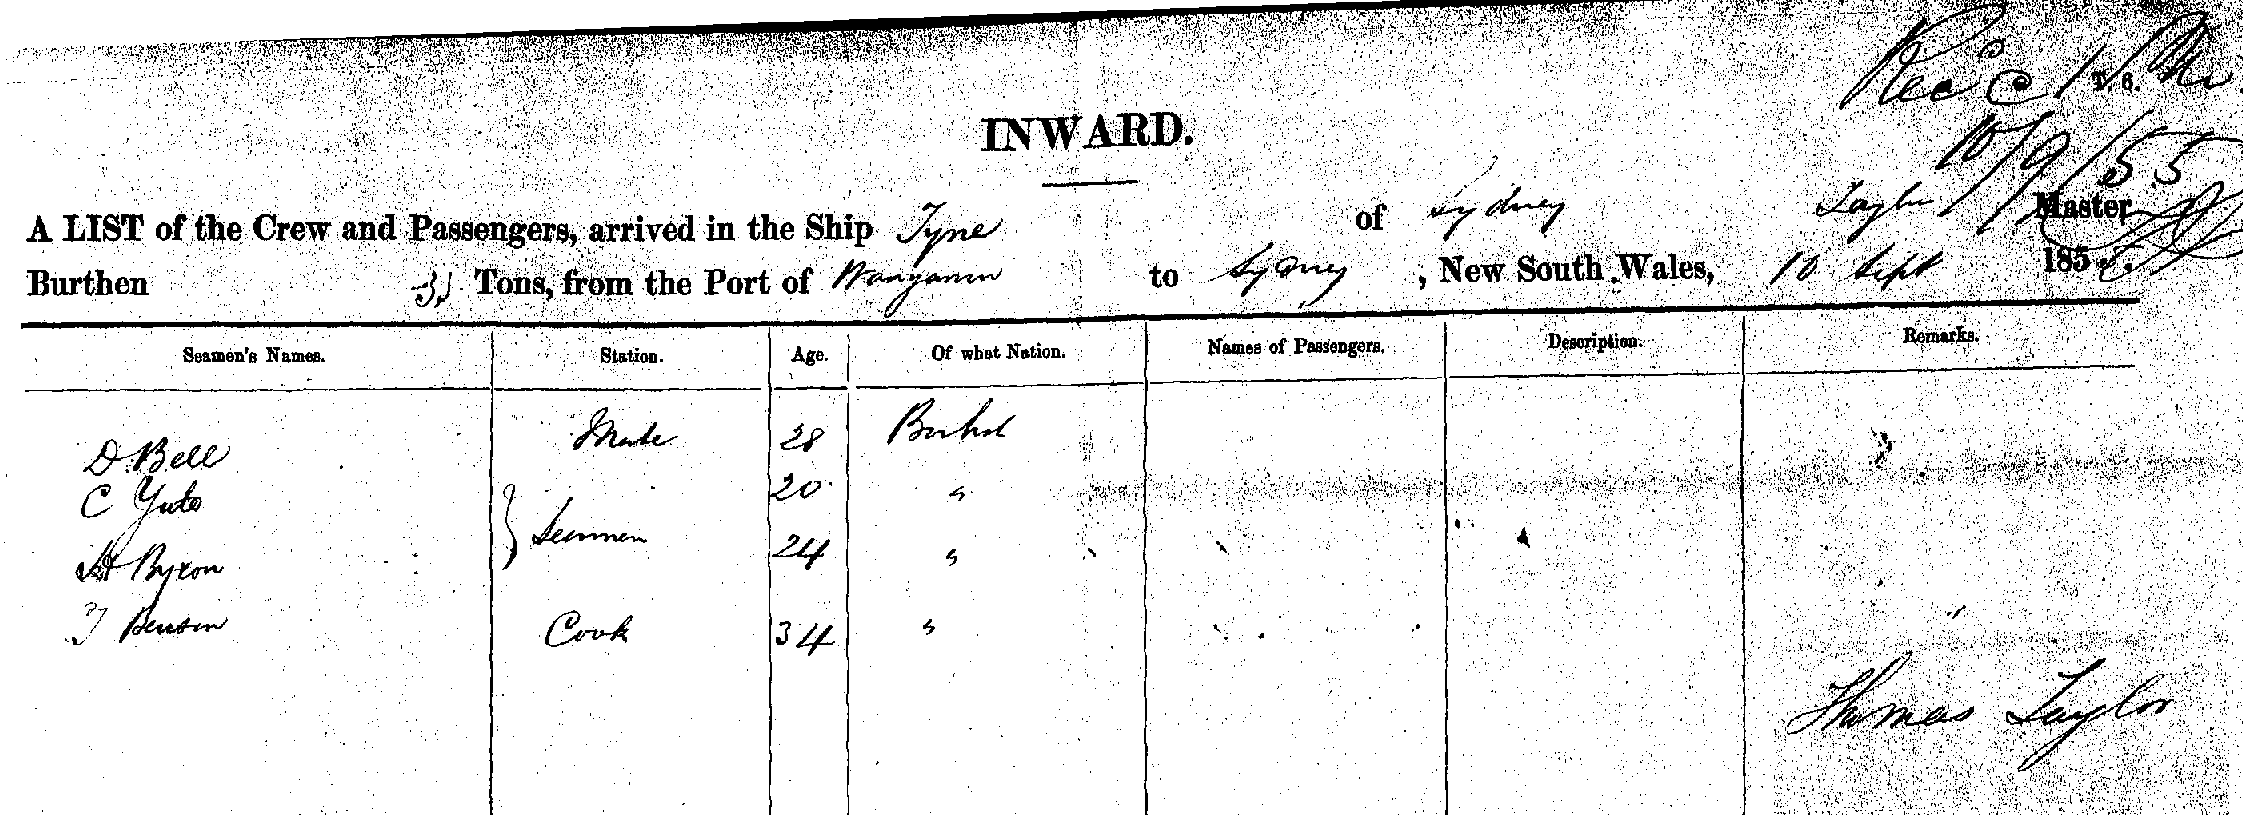 Rec'd
T. S.
10/9/55
INWARD.
A LIST of the Crew and Passengers, arrived in the Ship Tyne of Sydney Taylor Master
Burthen Tons, from the Port of to Sydney, New South Wales, 10 Sept 185
Seamen's Names. Station. Age. Of what Nation. Names of Passengers. Description. Remarks.
D. Bell Mate 28
C 20 "
} Seamen
H Byron 24 "
T Benson Cook 34 "
Thomas Taylor